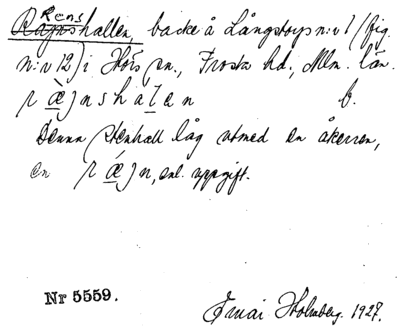 Rens
Ragnshallen, backe å Långstorps n:r 1 (fig.
n:r 12) i Hörs sn., Frosta hd., Mlm. län.
r æ̀ j n s h a l e n b.
Denna stenhall låg utmed en åkerren,
en r ǽ j n, enl. uppgift.
Nr 5559.
Holmberg. 1927.